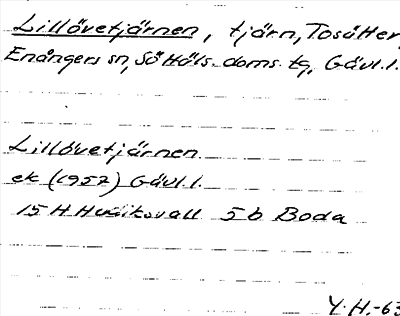 Lillövetjärnen, tjärn, Tosätter,
Enångers sn, Sö Häls. doms. tg, Gävl. l.
Lillövetjärnen
ek (1957) Gävl. l.
15 H Hudiksvall 5 b Boda
Y. H. -63